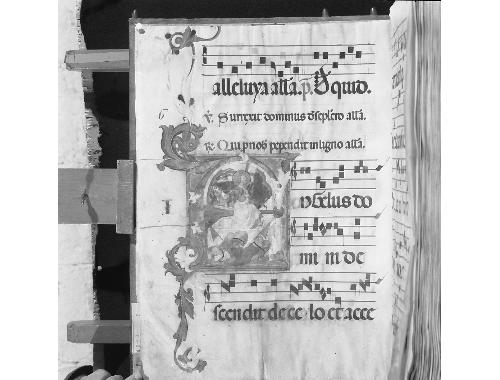 alleluya all'a. p̄. A quid.
℣. Surrexit dominus de sepulcro all'a.
℟. Qui pro nob pependit in ligno all'a.
ngelus do
mi ni de
scendit de ce lo et acce